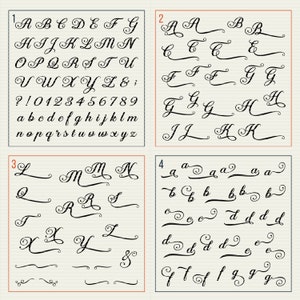 1
A B C D E F G
H I J K L M N
O P Q R S T U
V W X Y Z & ;
? ! 0 1 2 3 4 5 6 7 8 9
a b c d e f g h i j k l m
n o p q r s t u v w x y z
2
A A B B
C C C E E
F F F G G
G G H H
J J K K
3
L M M N
Q R R S
T
X X Y Z
&
4
a a a a a a
b b b b b b
d d d d d d
e e e e e e
f f f g g g